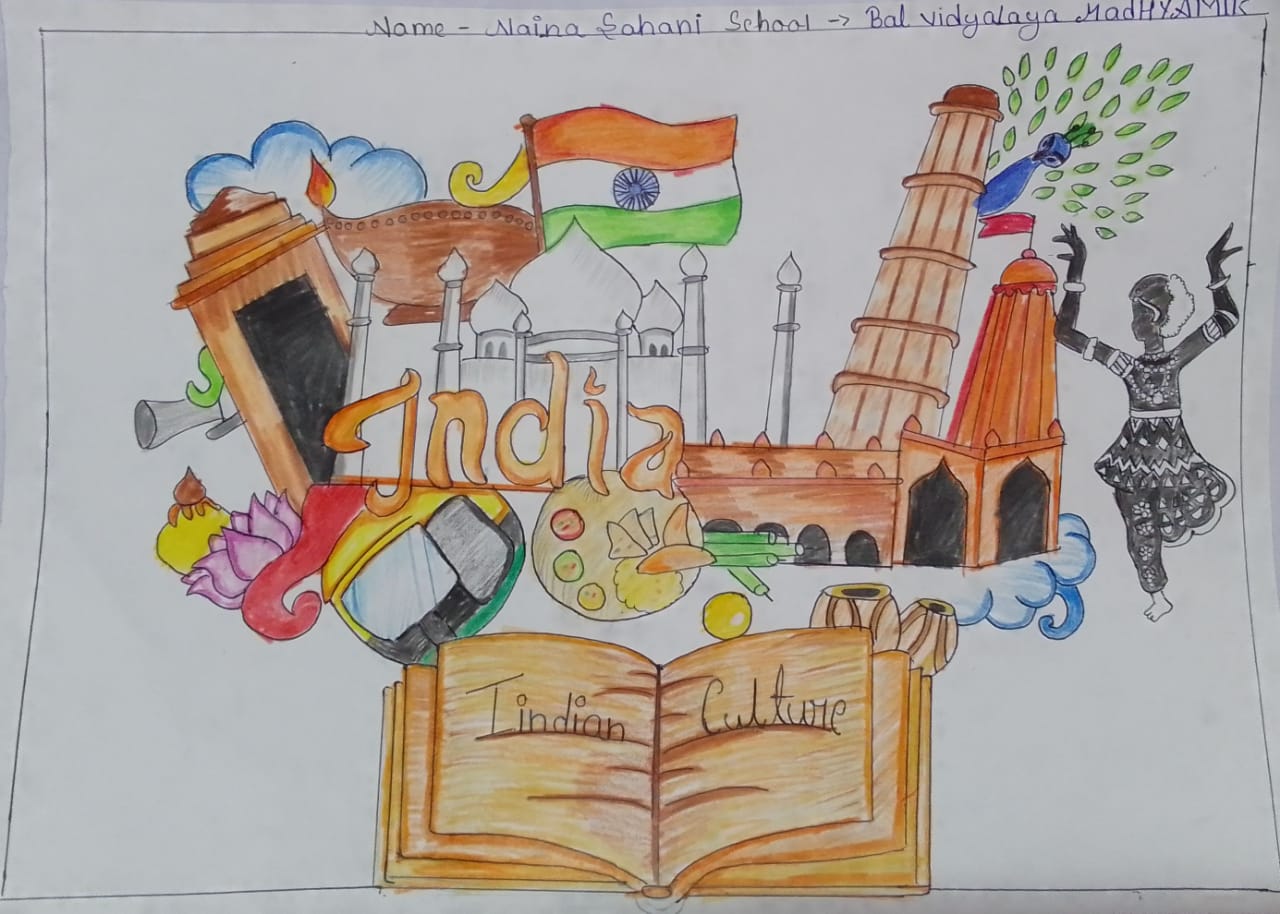 Name - Naina Sahani School -> Bal vidyalaya MadHYAMIK
India
Iindian Culture